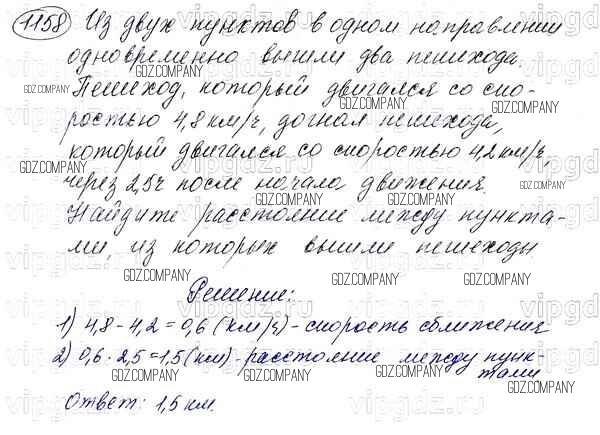 1158 Из двух пунктов в одном направлении
одновременно вышли два пешехода.
Пешеход, который двигался со ско-
ростью 4,8 км/ч, догнал пешехода,
который двигался со скоростью 4,2 км/ч,
через 2,5 ч после начала движения.
Найдите расстояние между пункта-
ми, из которых вышли пешеходы
Решение:
1) 4,8 - 4,2 = 0,6 (км/ч) - скорость сближения
2) 0,6 · 2,5 = 1,5 (км) - расстояние между пунк-
тами
Ответ: 1,5 км.